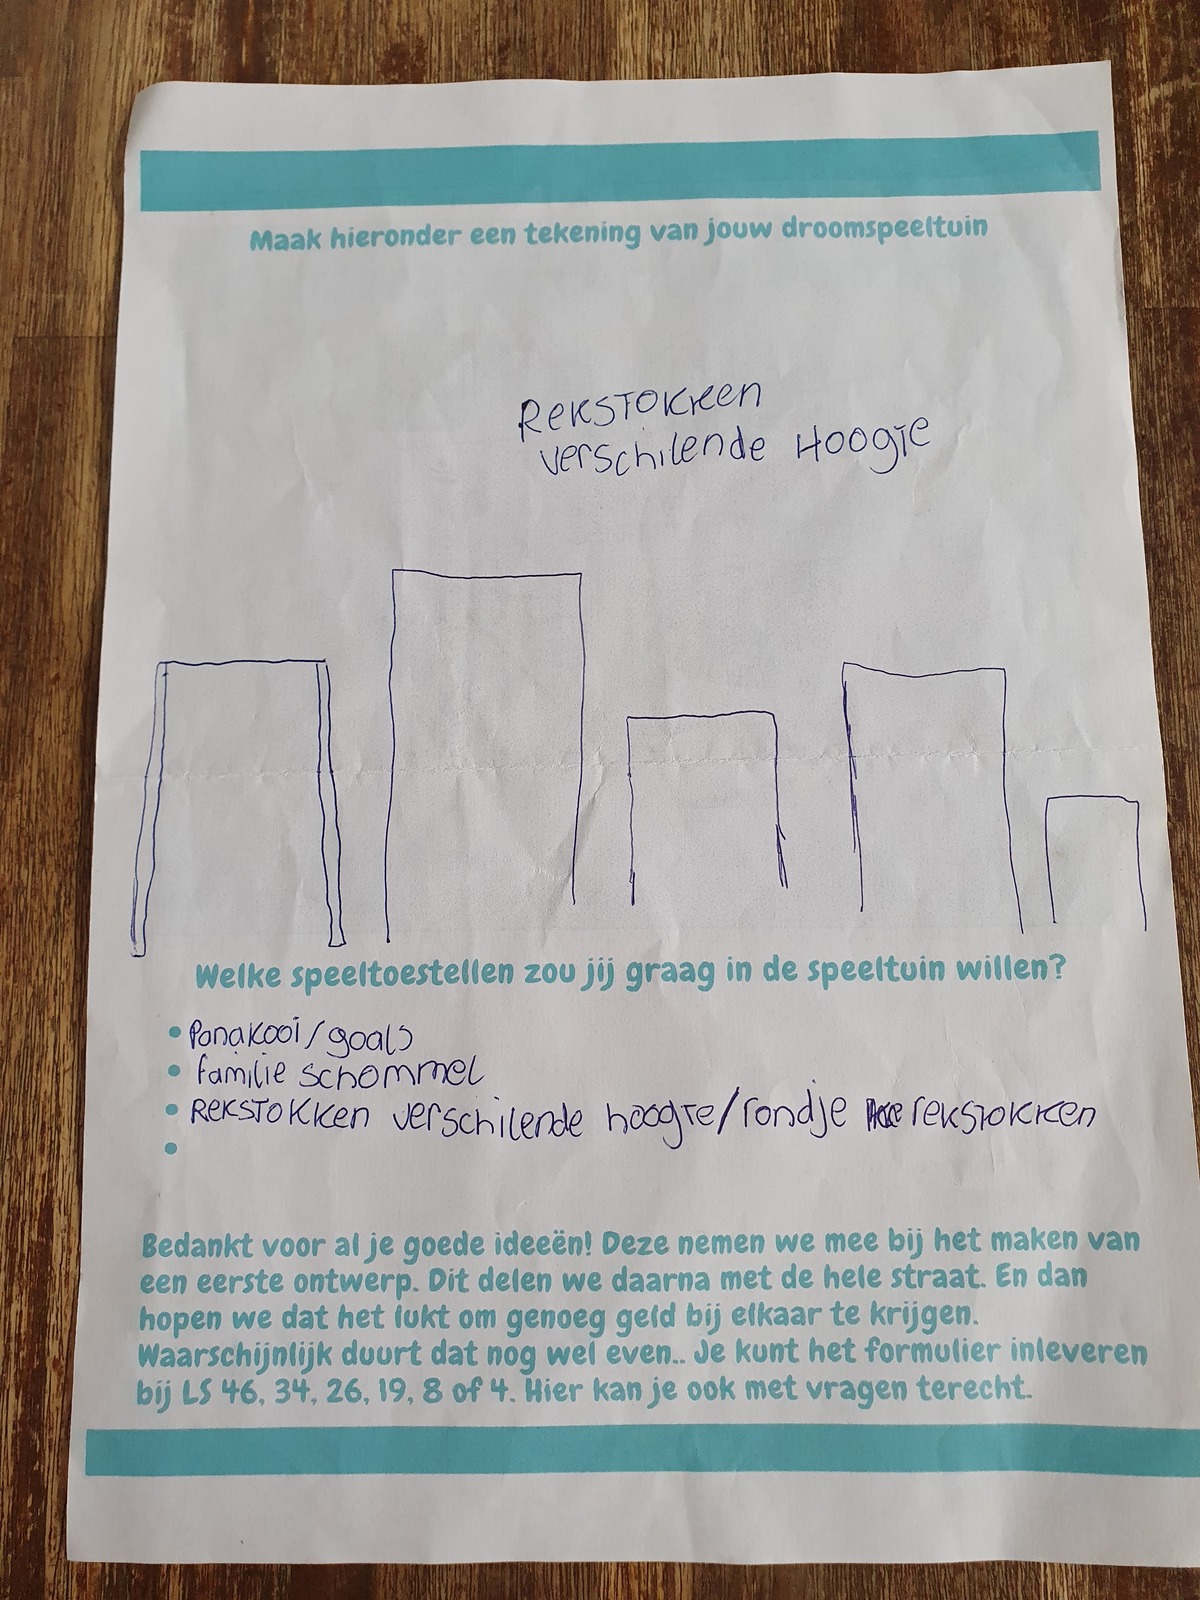 Maak hieronder een tekening van jouw droomspeeltuin
REKSTOKKEN
verschilende Hoogte
Welke speeltoestellen zou jij graag in de speeltuin willen?
• Panakooi/goals
• familie schommel
• REKSTOKKEN verschilende hoogte/rondje rekstokken
•
Bedankt voor al je goede ideeën! Deze nemen we mee bij het maken van
een eerste ontwerp. Dit delen we daarna met de hele straat. En dan
hopen we dat het lukt om genoeg geld bij elkaar te krijgen.
Waarschijnlijk duurt dat nog wel even.. Je kunt het formulier inleveren
bij LS 46, 34, 26, 19, 8 of 4. Hier kan je ook met vragen terecht.